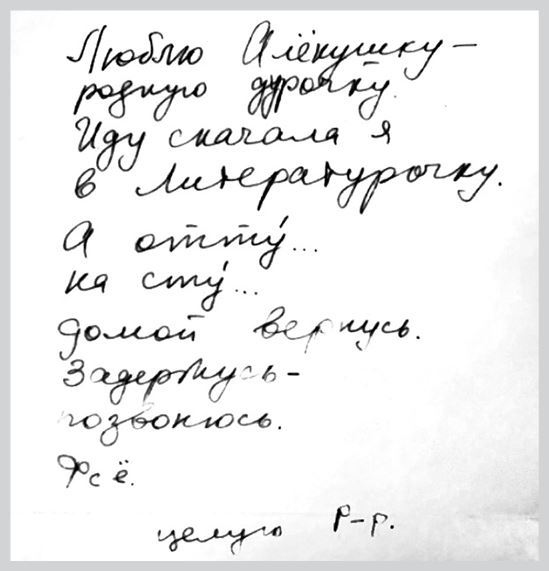 Люблю Алёкушку –
родную дурочку.
Иду сначала я
в Литературочку.
А отту́...
на сту́...
домой вернусь.
Задержусь –
позвонюсь.
Фсё.
целую Р-р.